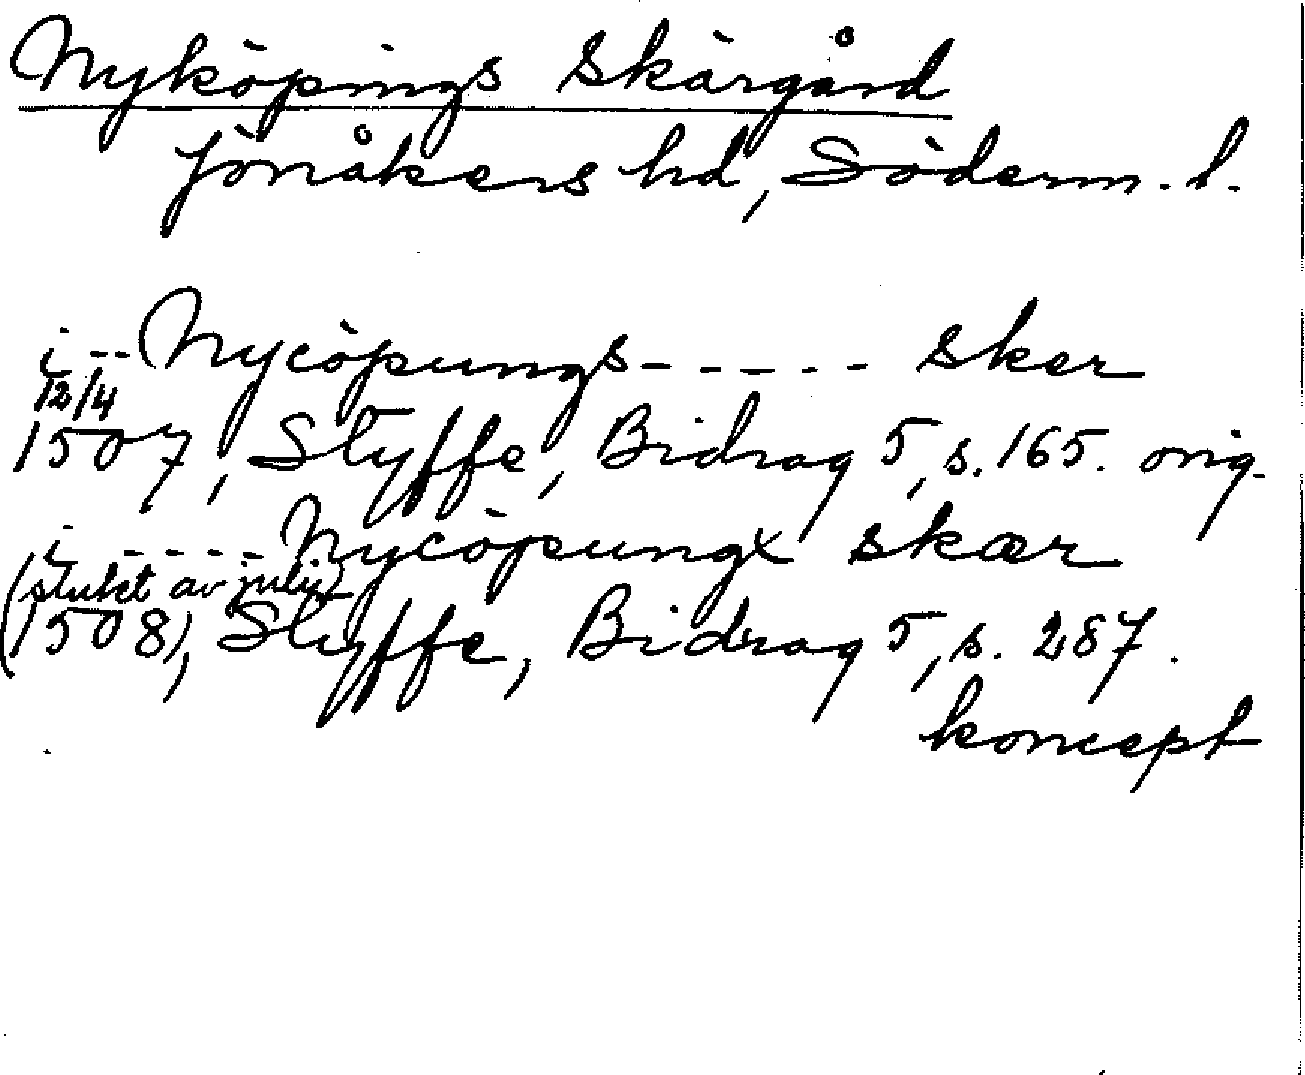 Nyköpings skärgård
Jönåkers hd, Söderm. l.
i -- Nycöpungs - - - - - sker
12/4
1507, Styffe, Bidrag 5, s. 165. orig.
i - - - - Nycöpungx skær
(slutet av juli)
(1508), Styffe, Bidrag 5, s. 287.
koncept